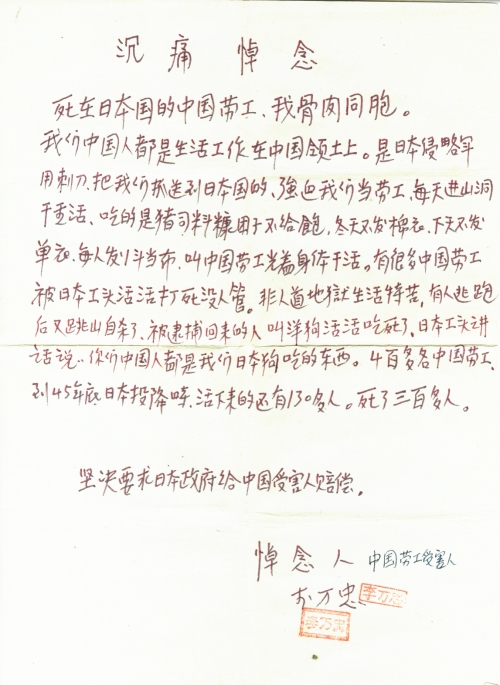 沉痛悼念
死在日本国的中国劳工、我骨肉同胞。
我们中国人都是生活工作在中国领土上。是日本侵略军
用刺刀、把我们抓送到日本国的、強迫我们当劳工、每天进山洞
干重活、吃的是猪司料糠团子不给飽、冬天不发棉衣、下天不发
单衣、每人发1斗当布、叫中国劳工光着身体干活。有很多中国劳工
被日本工头活活打死没人管。非人道地獄生活特苦，有人逃跑
后又跳山自杀了、被逮捕回来的人叫洋狗活活吃死了、日本工头讲
话说：你们中国人都是我们日本狗吃的东西。4百多名中国劳工、
到45年底日本投降時、活下来的还有130多人。死了三百多人。
坚决要求日本政府给中国受害人赔偿。
悼念人 中国劳工受害人
李万忠 李万忠
李万忠